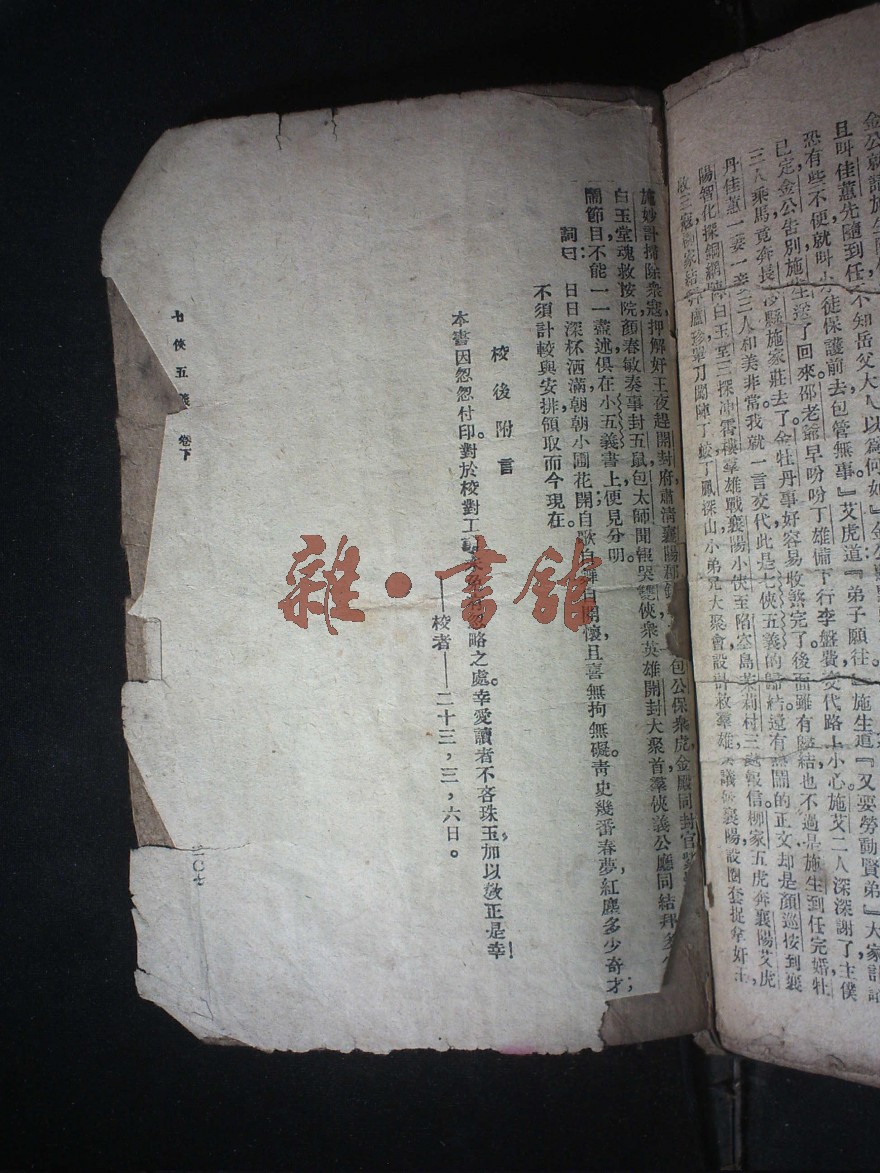 金公就請施生
且叫佳蕙先隨到任不知岳父大人以為何如』金公
恐有些不便就叫小徒保護前去包管無事』艾虎道『弟子願往』施生道『又要勞動賢弟』大家計議
已定金公告別施生送了回來邵老爺早吩吩丁雄備下行李盤費交代路上小心施艾二人深深謝了主僕
三人乘馬竟奔長沙縣施家莊去了金牡丹事好容易收煞完了後面雖有歸結也不過是施生到任完婚牡
丹佳蕙一妻一妾三人和美非常我就一言交代此是七俠五義的歸結還有無關的正文却是顏巡按到襄
陽智化探銅網陣白玉堂三探冲霄樓羣雄戰襄陽小俠至陷空島茉莉村三處報信柳家五虎奔襄陽艾虎
收三寇柳家結拜盧珍單刀闖陣丁蛟丁鳳深山小弟兄大聚會設計救羣雄議破襄陽設圈套捉拿奸王
施妙計掃除衆寇押解奸王夜趕開封府肅清襄陽郡 包公保衆虎金殿同封官
白玉堂魂救按院顏春敏奏事封五鼠包太師聞報哭雙俠衆英雄開封大聚首羣俠義公廳同結拜多少
關節目不能一一盡述俱在小五義書上便見分明。
詞曰：日日深杯酒滿朝朝小圃花開自歌自舞自開懷且喜無拘無礙。青史幾番春夢紅塵多少奇才；
不須計較與安排領取而今現在。
校後附言
本書因忽忽付印。對於校對工 未免有忽略之處。幸愛讀者不吝珠玉，加以斧正是幸！
——校者——二十三，三，六日。
七俠五義 卷下
二〇七
雜·書館